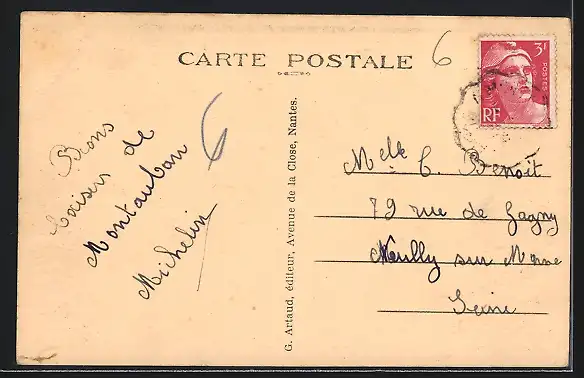 CARTE POSTALE
6
3F
POSTES
RF
Bons
baisers de
Montauban
Michelin
6
G. Artaud, éditeur, Avenue de la Close, Nantes.
Melle C. Benoit
79 rue de Gagny
Neuilly sur Marne
Seine